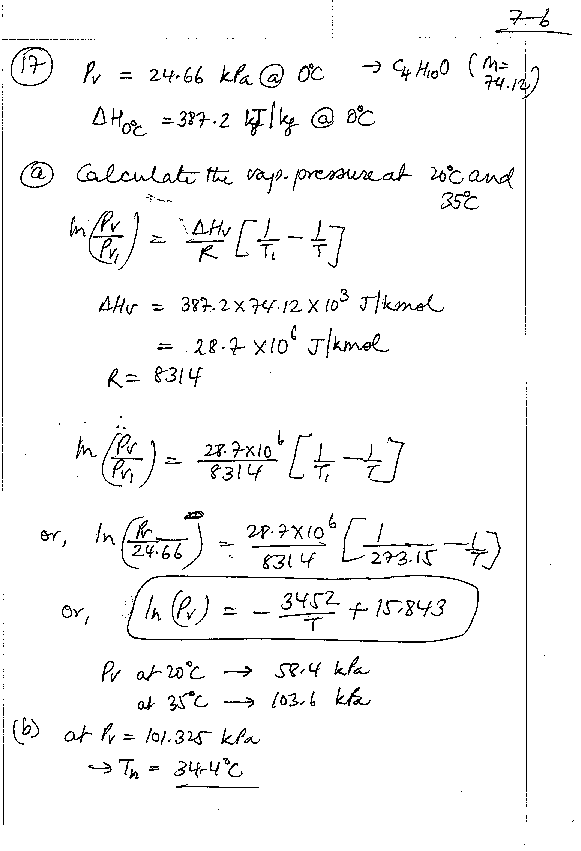 7-6
(17) Pv = 24.66 kPa @ 0°C → C4H10O (M= 74.12)
ΔH0°C = 387.2 kJ/kg @ 0°C
(a) Calculate the vap. pressure at 20°C and 35°C
ln(Pv/Pv1) = ΔHv/R [1/T1 - 1/T]
ΔHv = 387.2 x 74.12 x 10³ J/kmol
= 28.7 x10⁶ J/kmol
R = 8314
∴
ln(Pv/Pv1) = 28.7x10⁶/8314 [1/T1 - 1/T]
or, ln(Pv/24.66) = 28.7x10⁶/8314 [1/273.15 - 1/T]
or, ln(Pv) = - 3452/T + 15.843
Pv at 20°C → 58.4 kPa
at 35°C → 103.6 kPa
(b) at Pv = 101.325 kPa
→ Tn = 34.4°C